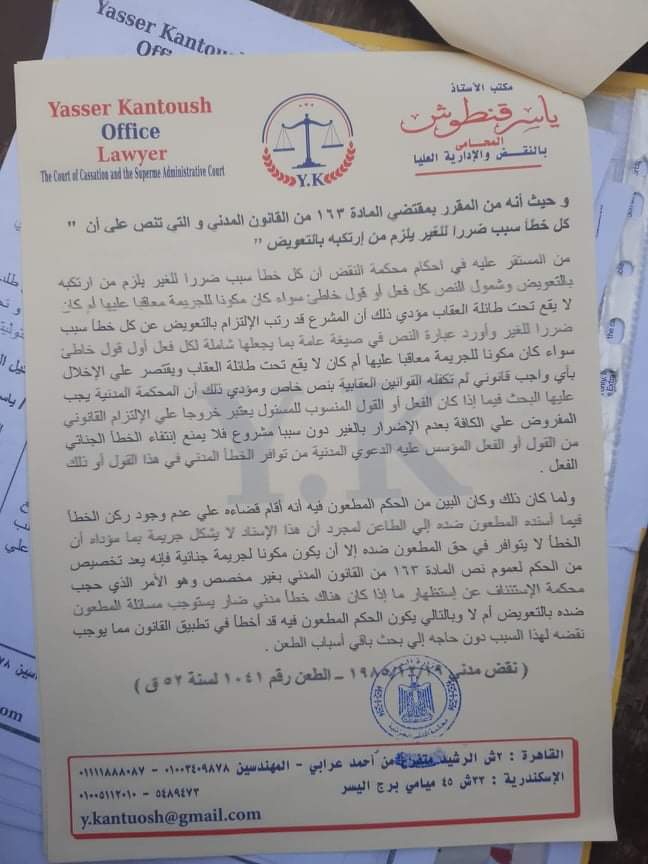 Yasser Kantoush
Yasser Kantoush
Office
Lawyer
The Court of Cassation and the Superme Administrative Court
Y.K
مكتب الأستاذ
ياسر قنطوش
المحامى
بالنقض والإدارية العليا
و حيث أنه من المقرر بمقتضي المادة ١٦٣ من القانون المدني و التي تنص على أن "
كل خطأ سبب ضررا للغير يلزم من إرتكبه بالتعويض "
من المستقر عليه في احكام محكمة النقض ان كل خطا سبب ضررا للغير يلزم من ارتكبه
بالتعويض وشمول النص كل فعل أو قول خاطئ سواء كان مكونا للجريمة معاقبا عليها أم كان
لا يقع تحت طائلة العقاب مؤدي ذلك أن المشرع قد رتب الإلتزام بالتعويض عن كل خطأ سبب
ضررا للغير وأورد عبارة النص في صيغة عامة بما يجعلها شاملة لكل فعل أول قول خاطئ
سواء كان مكونا للجريمة معاقبا عليها أم كان لا يقع تحت طائلة العقاب ويقتصر علي الإخلال
بأي واجب قانوني لم تكفله القوانين العقابية بنص خاص ومؤدي ذلك أن المحكمة المدنية يجب
عليها البحث فيما إذا كان الفعل أو القول المنسوب للمسئول يعتبر خروجا علي الإلتزام القانوني
المفروض علي الكافة بعدم الإضرار بالغير دون سببا مشروع فلا يمنع إنتفاء الخطأ الجنائي
من القول أو الفعل المؤسس عليه الدعوي المدنية من توافر الخطأ المدني في هذا القول أو ذلك
الفعل .
ولما كان ذلك وكان البين من الحكم المطعون فيه أنه أقام قضاءه علي عدم وجود ركن الخطأ
فيما أسنده المطعون ضده إلي الطاعن لمجرد أن هذا الإسناد لا يشكل جريمة بما مؤداه أن
الخطأ لا يتوافر في حق المطعون ضده إلا أن يكون مكونا لجريمة جنائية فإنه يعد تخصيص
من الحكم لعموم نص المادة ١٦٣ من القانون المدني بغير مخصص وهو الأمر الذي حجب
محكمة الإستئناف عن إستظهار ما إذا كان هناك خطأ مدني ضار يستوجب مسائلة المطعون
ضده بالتعويض أم لا وبالتالي يكون الحكم المطعون فيه قد أخطأ في تطبيق القانون مما يوجب
نقضه لهذا السبب دون حاجه إلي بحث باقي أسباب الطعن .
( نقض مدني ١٩٨٥/١٢/١٩ – الطعن رقم ١٠٤١ لسنة ٥٢ ق )
القاهرة : ٢ش الرشيد متفرع من أحمد عرابي - المهندسين ٠١٠٠٣٤٠٩٨٧٨ - ٠١١١١٨٨٨٠٨٧
الإسكندرية : ٢٣ش ٤٥ ميامي برج اليسر ٥٤٨٩٤٧٣ - ٠١٠٠٥١١٢٠١٠
y.kantuosh@gmail.com